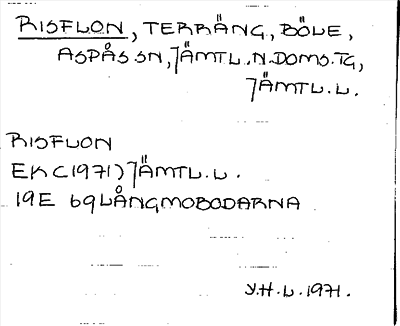 RISFLON, TERRÄNG, BÖLE,
ASPÅS SN, JÄMTL.N.DOMS.TG,
JÄMTL.L.
RISFLON
EK (1971) JÄMTL.L.
19E 69 LÅNGMOBODARNA
Y.H.L. 1971.